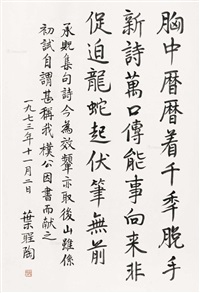 胸中曆曆着千秊脫手
新詩萬口傳能事向來非
促迫龍蛇起伏筆無前
承觀集句詩今為效顰亦取後山雖係
初試自謂甚稱我樸公因書而獻之
一九七三年十一月二日
葉聖陶